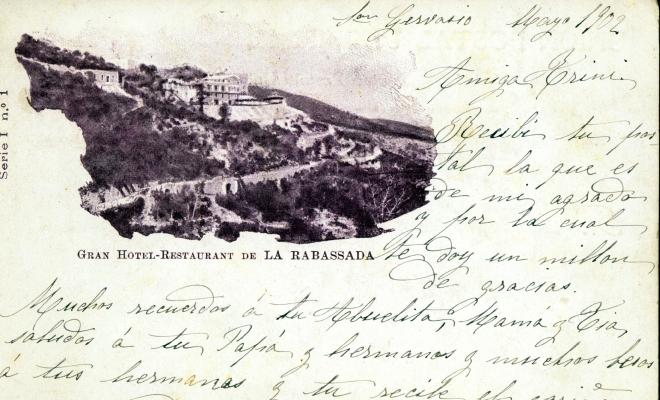 Sn Gervasio Mayo 1902
Amiga Trini,
Recibí tu pos-
tal la que es
de mi agrado
y por la cual
te doy un millon
de gracias.
Serie I n.º 1
GRAN HOTEL-RESTAURANT DE LA RABASSADA
Muchos recuerdos á tu Abuelita, Mamá y Tia,
saludos á tu Papá y hermanos y muchos besos
á tus hermanas y tu recibe el